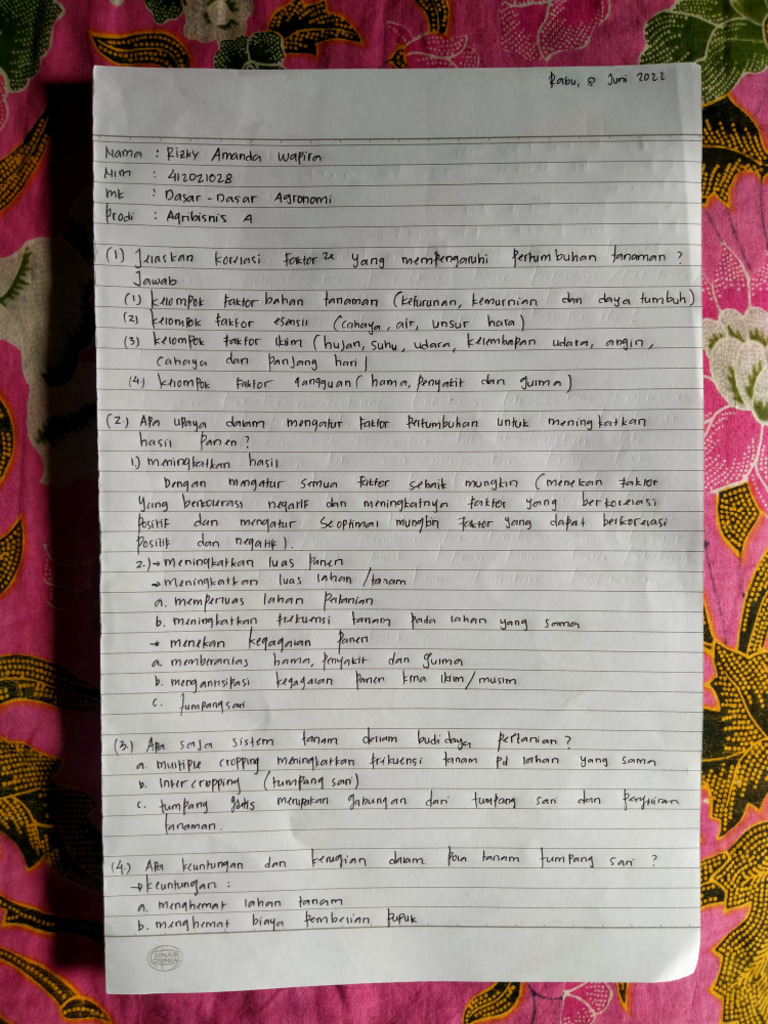 Rabu, 8 Juni 2022
Nama : Rizky Amanda Wapira
NIM : 412021028
MK : Dasar - Dasar Agronomi
Prodi : Agribisnis A
(1) Jelaskan korelasi faktor 2x yang mempengaruhi pertumbuhan tanaman ?
Jawab
(1) kelompok faktor bahan tanaman (keturunan, kemurnian dan daya tumbuh)
(2) kelompok faktor esensil (cahaya, air, unsur hara)
(3) kelompok faktor iklim (hujan, suhu, udara, kelembapan udara, angin,
cahaya dan panjang hari)
(4) kelompok faktor gangguan (hama, penyakit dan gulma)
(2.) Apa upaya dalam mengatur faktor pertumbuhan untuk meningkatkan
hasil panen ?
1.) meningkatkan hasil
Dengan mengatur semua faktor sebaik mungkin (menekan faktor
yang berkolerasi negatif dan meningkatnya faktor yang berkorelasi
positif dan mengatur seoptimal mungkin faktor yang dapat berkorelasi
positif dan negatif).
2.) → meningkatkan luas panen
→ meningkatkan luas lahan / tanam
a. memperluas lahan
b. meningkatkan frekuensi tanam pada lahan yang sama
→ menekan kegagalan panen
a. memberantas hama, penyakit dan gulma
b. mengantisipasi kegagalan panen krna iklim / musim
c. tumpang sari
(3.) Apa saja sistem tanam dalam budidaya pertanian ?
a. multiple cropping meningkatkan frekuensi tanam pd lahan yang sama
b. Inter cropping (tumpang sari)
c. tumpang merupakan gabungan dari tumpang sari dan
tanaman.
(4.) Apa keuntungan dan kerugian dalam pola tanam tumpang sari ?
→ keuntungan :
a. menghemat lahan tanam
b. menghemat biaya pemberian pupuk
SINAR DUNIA